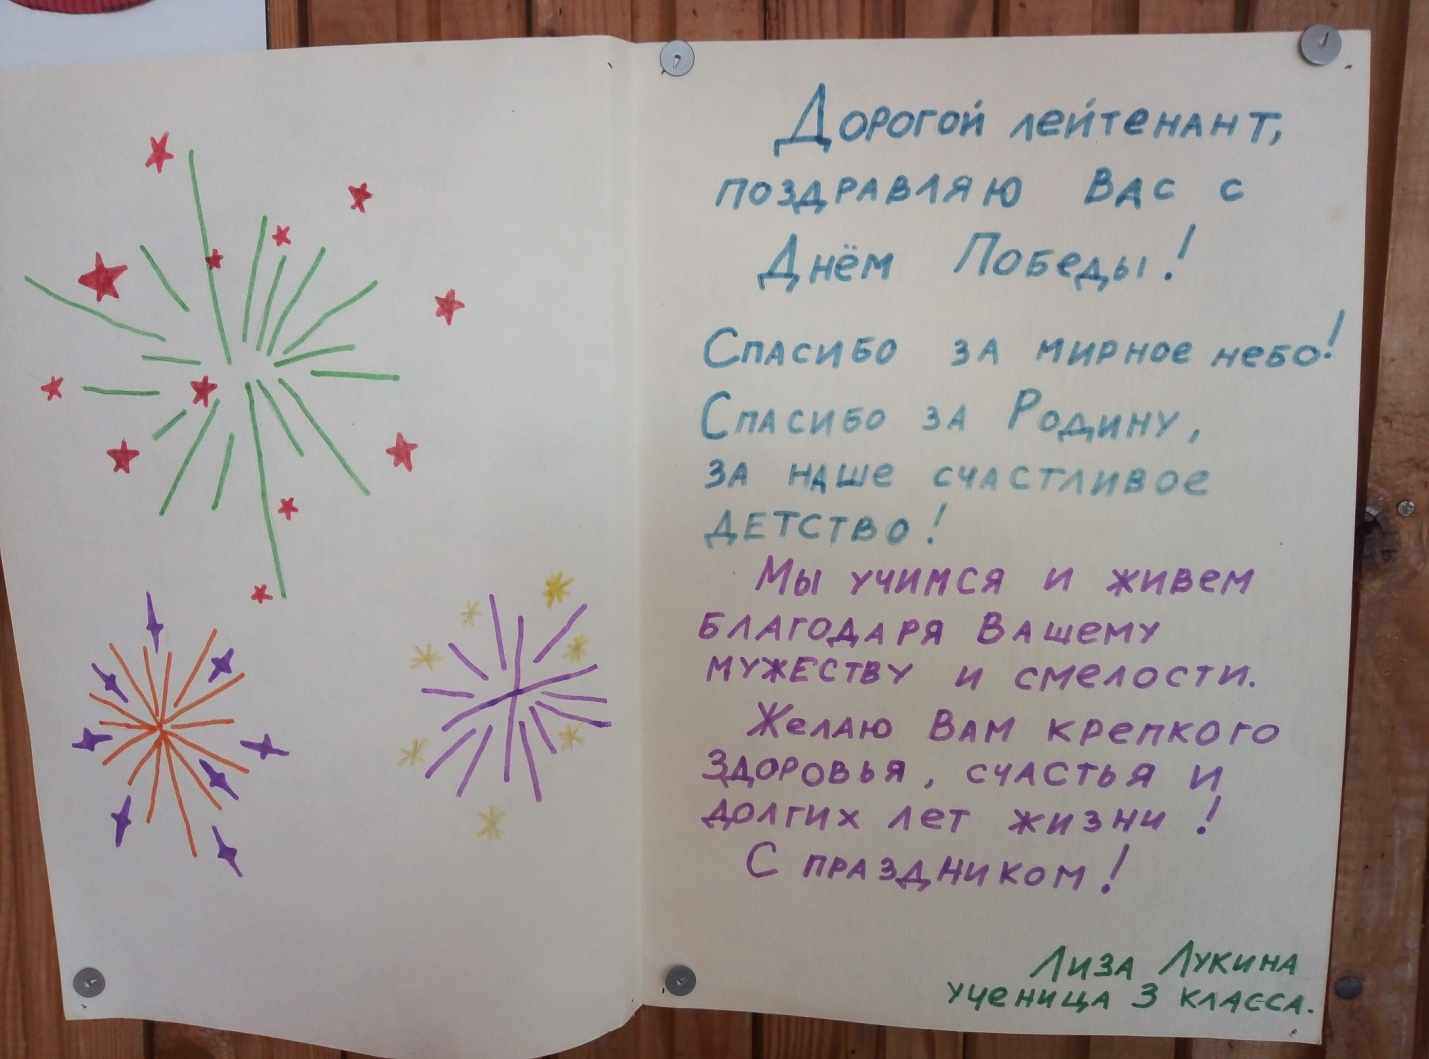 Дорогой лейтенант,
поздравляю Вас с
Днём Победы!
Спасибо за мирное небо!
Спасибо за Родину,
за наше счастливое
детство!
Мы учимся и живем
благодаря Вашему
мужеству и смелости.
Желаю Вам крепкого
здоровья, счастья и
долгих лет жизни!
С праздником!
Лиза Лукина
ученица 3 класса.